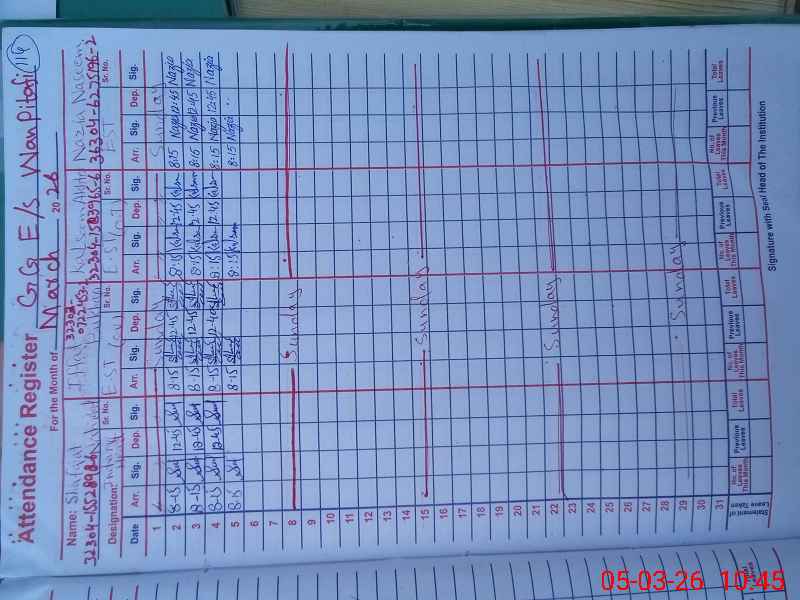 Attendance Register GG E/S Wanpitafi 116
For the Month of March 2026
Name: Shafqat Nahid 32304-1552898-4
Designation:
Sr. No.
32302-0722453-2
EST (
Sr. No.
Kalsoom Akhtar 32304-1583965-6
EST
Sr. No.
Nazia Naseem 36304-6275196-2
EST
Sr. No.
Date Arr. Sig. Dep. Sig. Arr. Sig. Dep. Sig. Arr. Sig. Dep. Sig. Arr. Sig. Dep. Sig.
1 Sunday Sunday
2 8-15 12:45 8:15 12:45 8:15 12:45 8:15 Nazia 12:45 Nazia
3 8-15 12:45 8:15 12:45 8:15 12:45 8:15 Nazia 12:45 Nazia
4 8-15 12:45 8:15 12:40 8:15 12:45 8:15 Nazia 12:45 Nazia
5 8-15 8:15 8:15 8:15 Nazia
6
7
8 Sunday
9
10
11
12
13
14
15 Sunday
16
17
18
19
20
21
22 Sunday
23
24
25
26
27
28
29 Sunday
30
31
Statement of Leave Taken No. of Leaves This Month Previous Leaves Total Leaves No. of Leaves This Month Previous Leaves Total Leaves No. of Leaves This Month Previous Leaves Total Leaves No. of Leaves This Month Previous Leaves Total Leaves
Signature with Seal Head of The Institution
Total Leaves
05-03-26 10:45